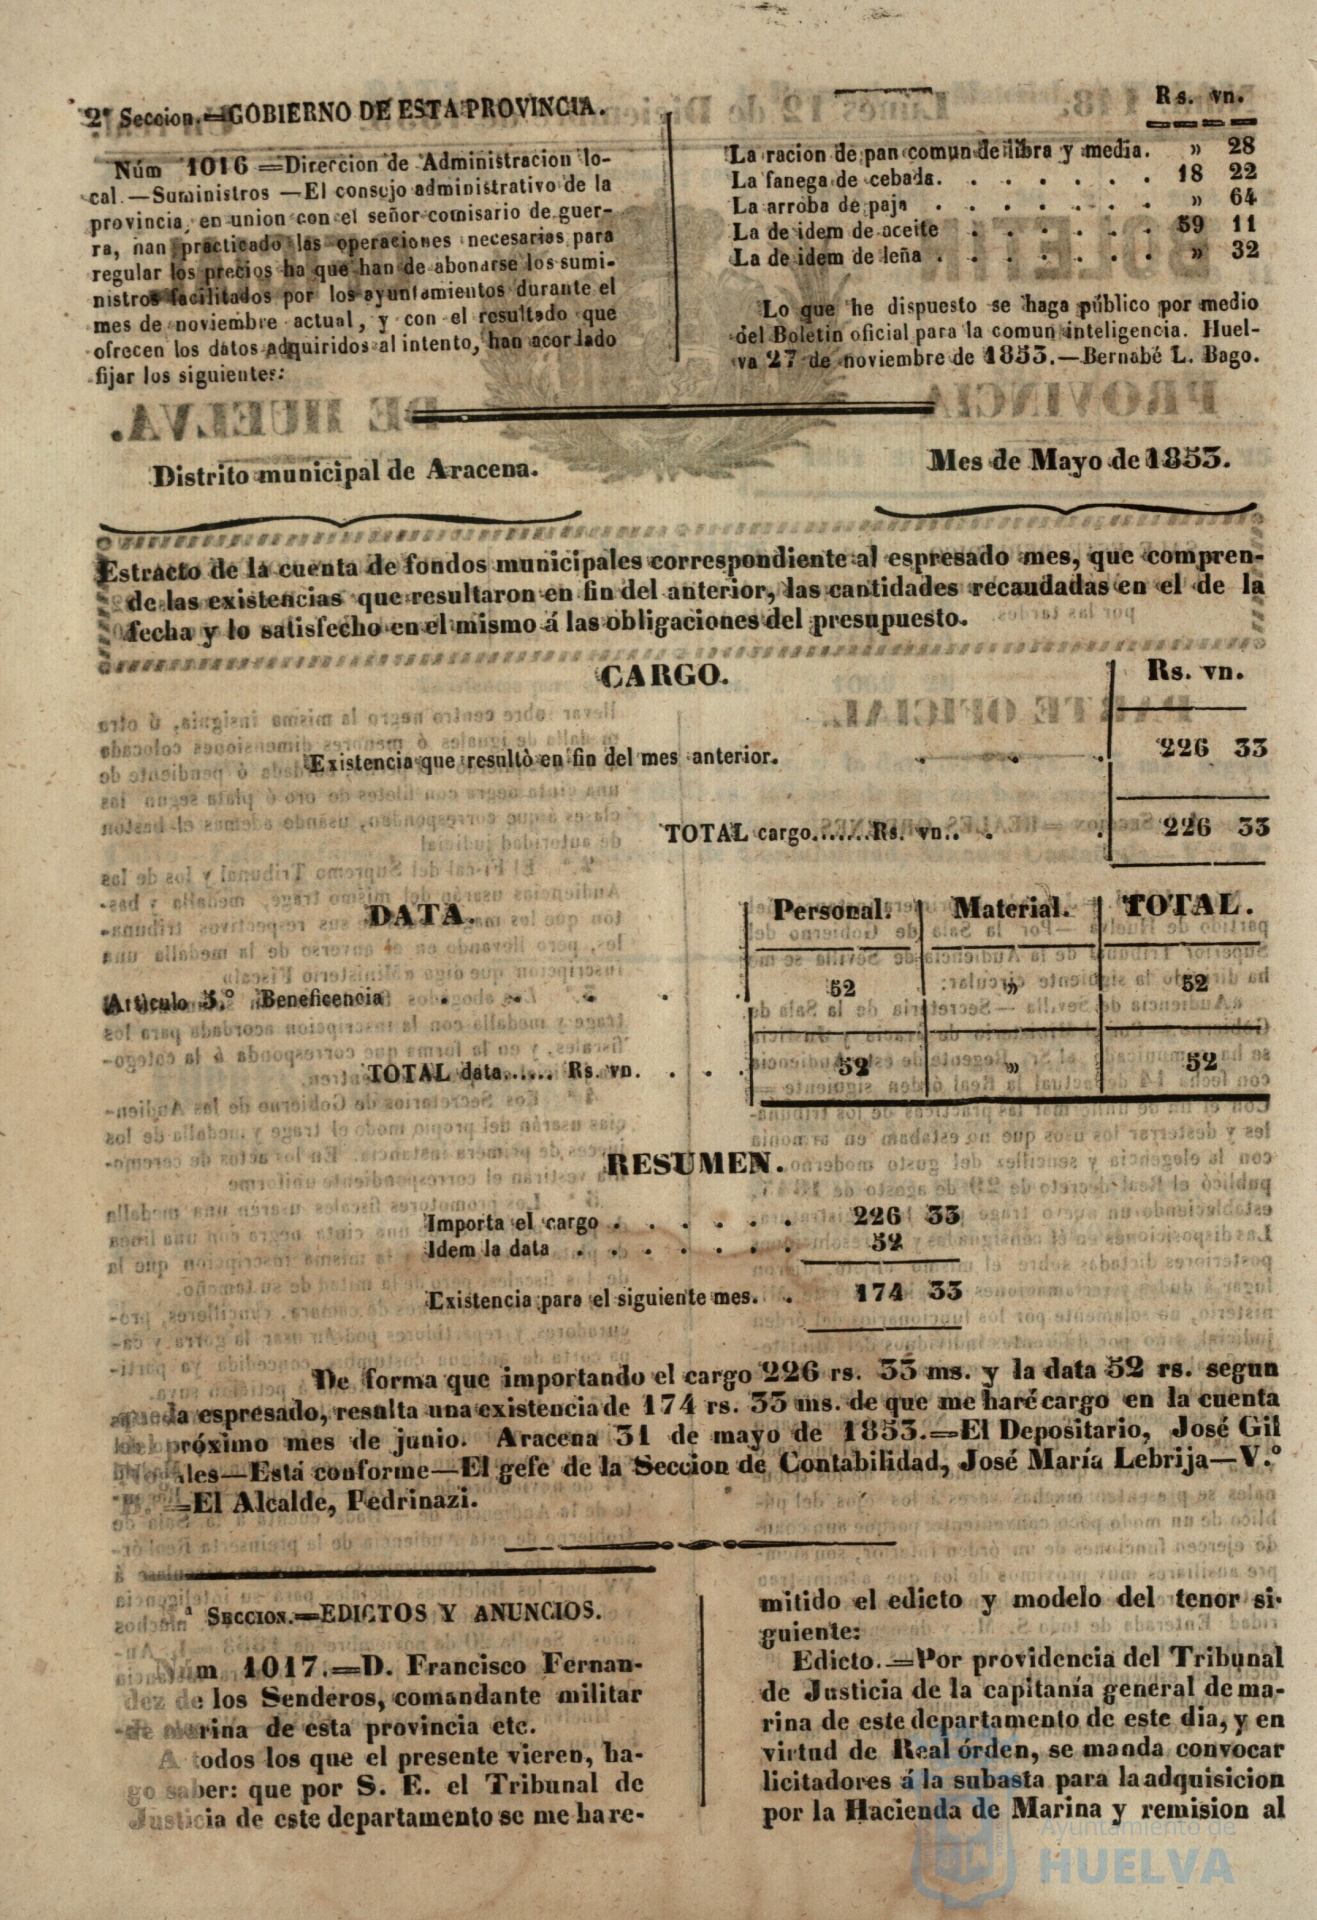 2ª Seccion.=GOBIERNO DE ESTA PROVINCIA.
Núm 1016=Direccion de Administracion lo-
cal.—Suministros—El consejo administrativo de la
provincia, en union con el señor comisario de guer-
ra, han practicado las operaciones necesarias para
regular los precios ha que han de abonarse los sumi-
nistros facilitados por los ayuntamientos durante el
mes de noviembre actual, y con el resultado que
ofrecen los datos adquiridos al intento, han acordado
fijar los siguientes:
Rs. vn.
La racion de pan comun de libra y media. » 28
La fanega de cebada. . . . . . . . 18 22
La arroba de paja . . . . . . . . » 64
La de idem de aceite . . . . . . . 59 11
La de idem de leña . . . . . . . . » 32
Lo que he dispuesto se haga público por medio
del Boletin oficial para la comun inteligencia. Huel-
va 27 de noviembre de 1853.—Bernabé L. Bago.
Distrito municipal de Aracena.
Mes de Mayo de 1853.
Estracto de la cuenta de fondos municipales correspondiente al espresado mes, que compren-
de las existencias que resultaron en fin del anterior, las cantidades recaudadas en el de la
fecha y lo satisfecho en el mismo á las obligaciones del presupuesto.
CARGO.
Rs. vn.
Existencia que resultò en fin del mes anterior. . . . 226 33
TOTAL cargo.......Rs. vn.. . . 226 33
DATA.
Personal. Material. TOTAL.
Articulo 5.º Beneficencia . . . . . 52 » 52
TOTAL data...... Rs. vn. . . . 52 » 52
RESUMEN.
Importa el cargo . . . . . . 226 33
Idem la data . . . . . . . 52
Existencia para el siguiente mes. . 174 33
De forma que importando el cargo 226 rs. 33 ms. y la data 52 rs. segun
queda espresado, resulta una existencia de 174 rs. 33 ms. de que me haré cargo en la cuenta
próximo mes de junio. Aracena 31 de mayo de 1853.=El Depositario, José Gil
les—Está conforme—El gefe de la Seccion de Contabilidad, José María Lebrija—V.º
B.º=El Alcalde, Pedrinazi.
ª Seccion.=EDICTOS Y ANUNCIOS.
Núm 1017.=D. Francisco Fernan-
dez de los Senderos, comandante militar
de marina de esta provincia etc.
A todos los que el presente vieren, ha-
go saber: que por S. E. el Tribunal de
Justicia de este departamento se me ha re-
mitido el edicto y modelo del tenor si-
guiente:
Edicto.=Por providencia del Tribunal
de Justicia de la capitanía general de ma-
rina de este departamento de este dia, y en
virtud de Real órden, se manda convocar
licitadores á la subasta para la adquisicion
por la Hacienda de Marina y remision al
Ayuntamiento de
HUELVA